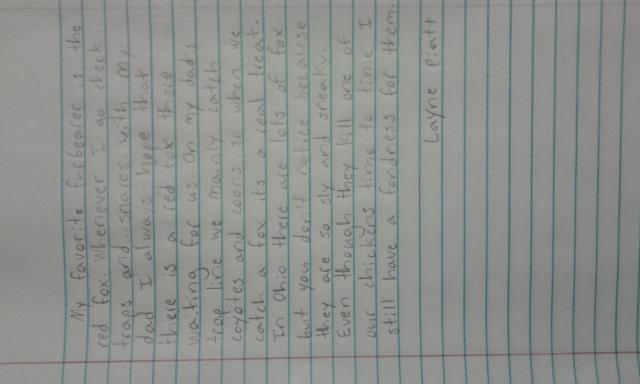 My favorite furbearer is the
red fox. Whenever I go check
traps and snares with my
dad I always hope that
there is a red fox there
waiting for us. On my dad's
trap line we mainly catch
coyotes and coons so when we
catch a fox its a real treat.
In Ohio there are lots of fox
but you don't notice because
they are so sly and sneaky.
Even though they kill one of
our chickens time to time I
still have a fondness for them.
Layne Piatt